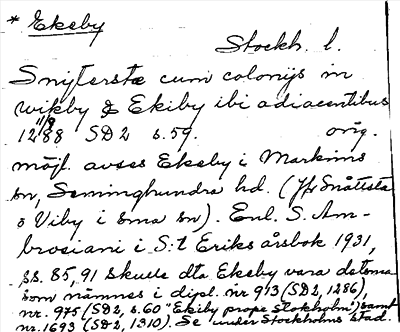 * Ekeby
Stockh. l.
Snyterstæ cum colonijs in
wikby & Ekiby ibi adiacentibus
11/8
1288 SD2 s. 59. orig.
möjl. avses Ekeby i Markims
sn, Seminghundra hd. (Jfr Snåttsta
o Viby i sma sn). Enl. S. Am-
brosiani i S:t Eriks årsbok 1931,
ss. 85, 91 skulle dta Ekeby vara detsma
som nämnes i dipl. nr 913 (SD2, 1286),
nr. 975 (SD2, s. 60 "Ekiby prope stokholm") samt
nr. 1693 (SD2, 1310). Se under Stockholms stad.